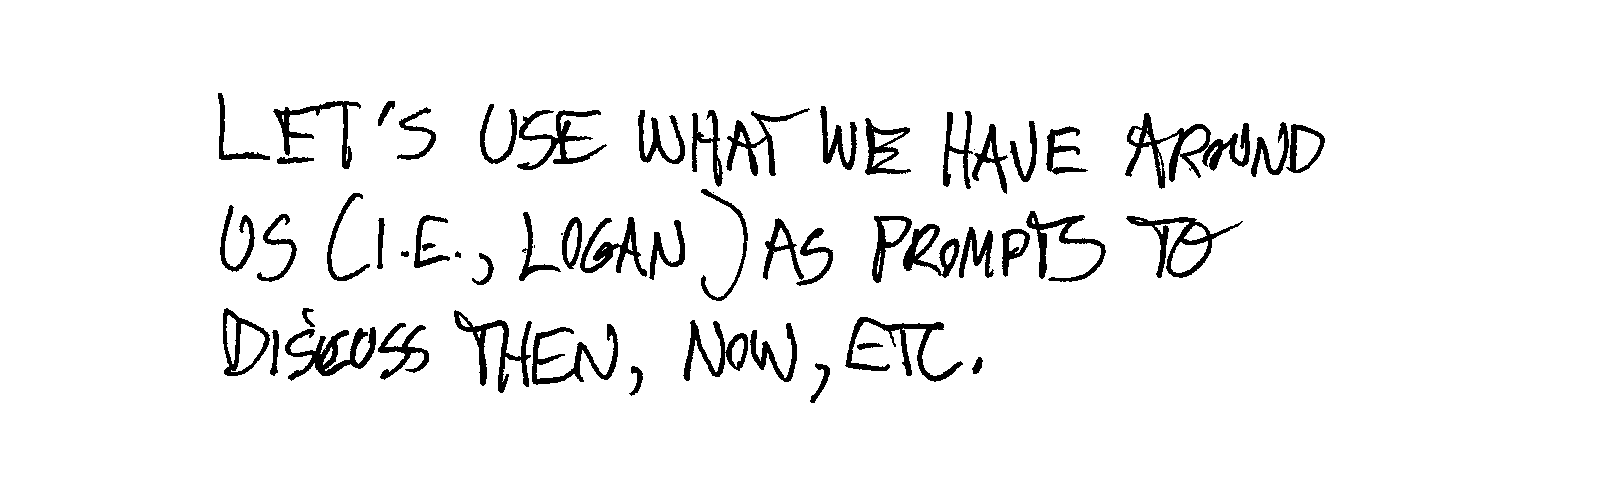 LET'S USE WHAT WE HAVE AROUND
US (I.E., LOGAN) AS PROMPTS TO
DISCUSS THEN, NOW, ETC.